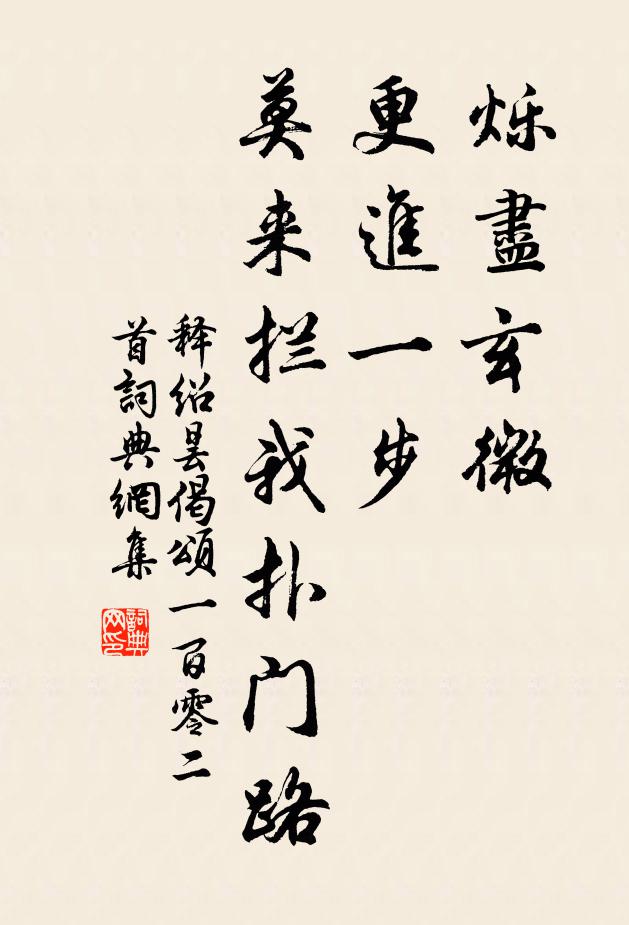 烁盡玄微
更進一步
莫来拦我扑门路
释绍昙偈頌一百零二
首詞典網集
詞典
网印